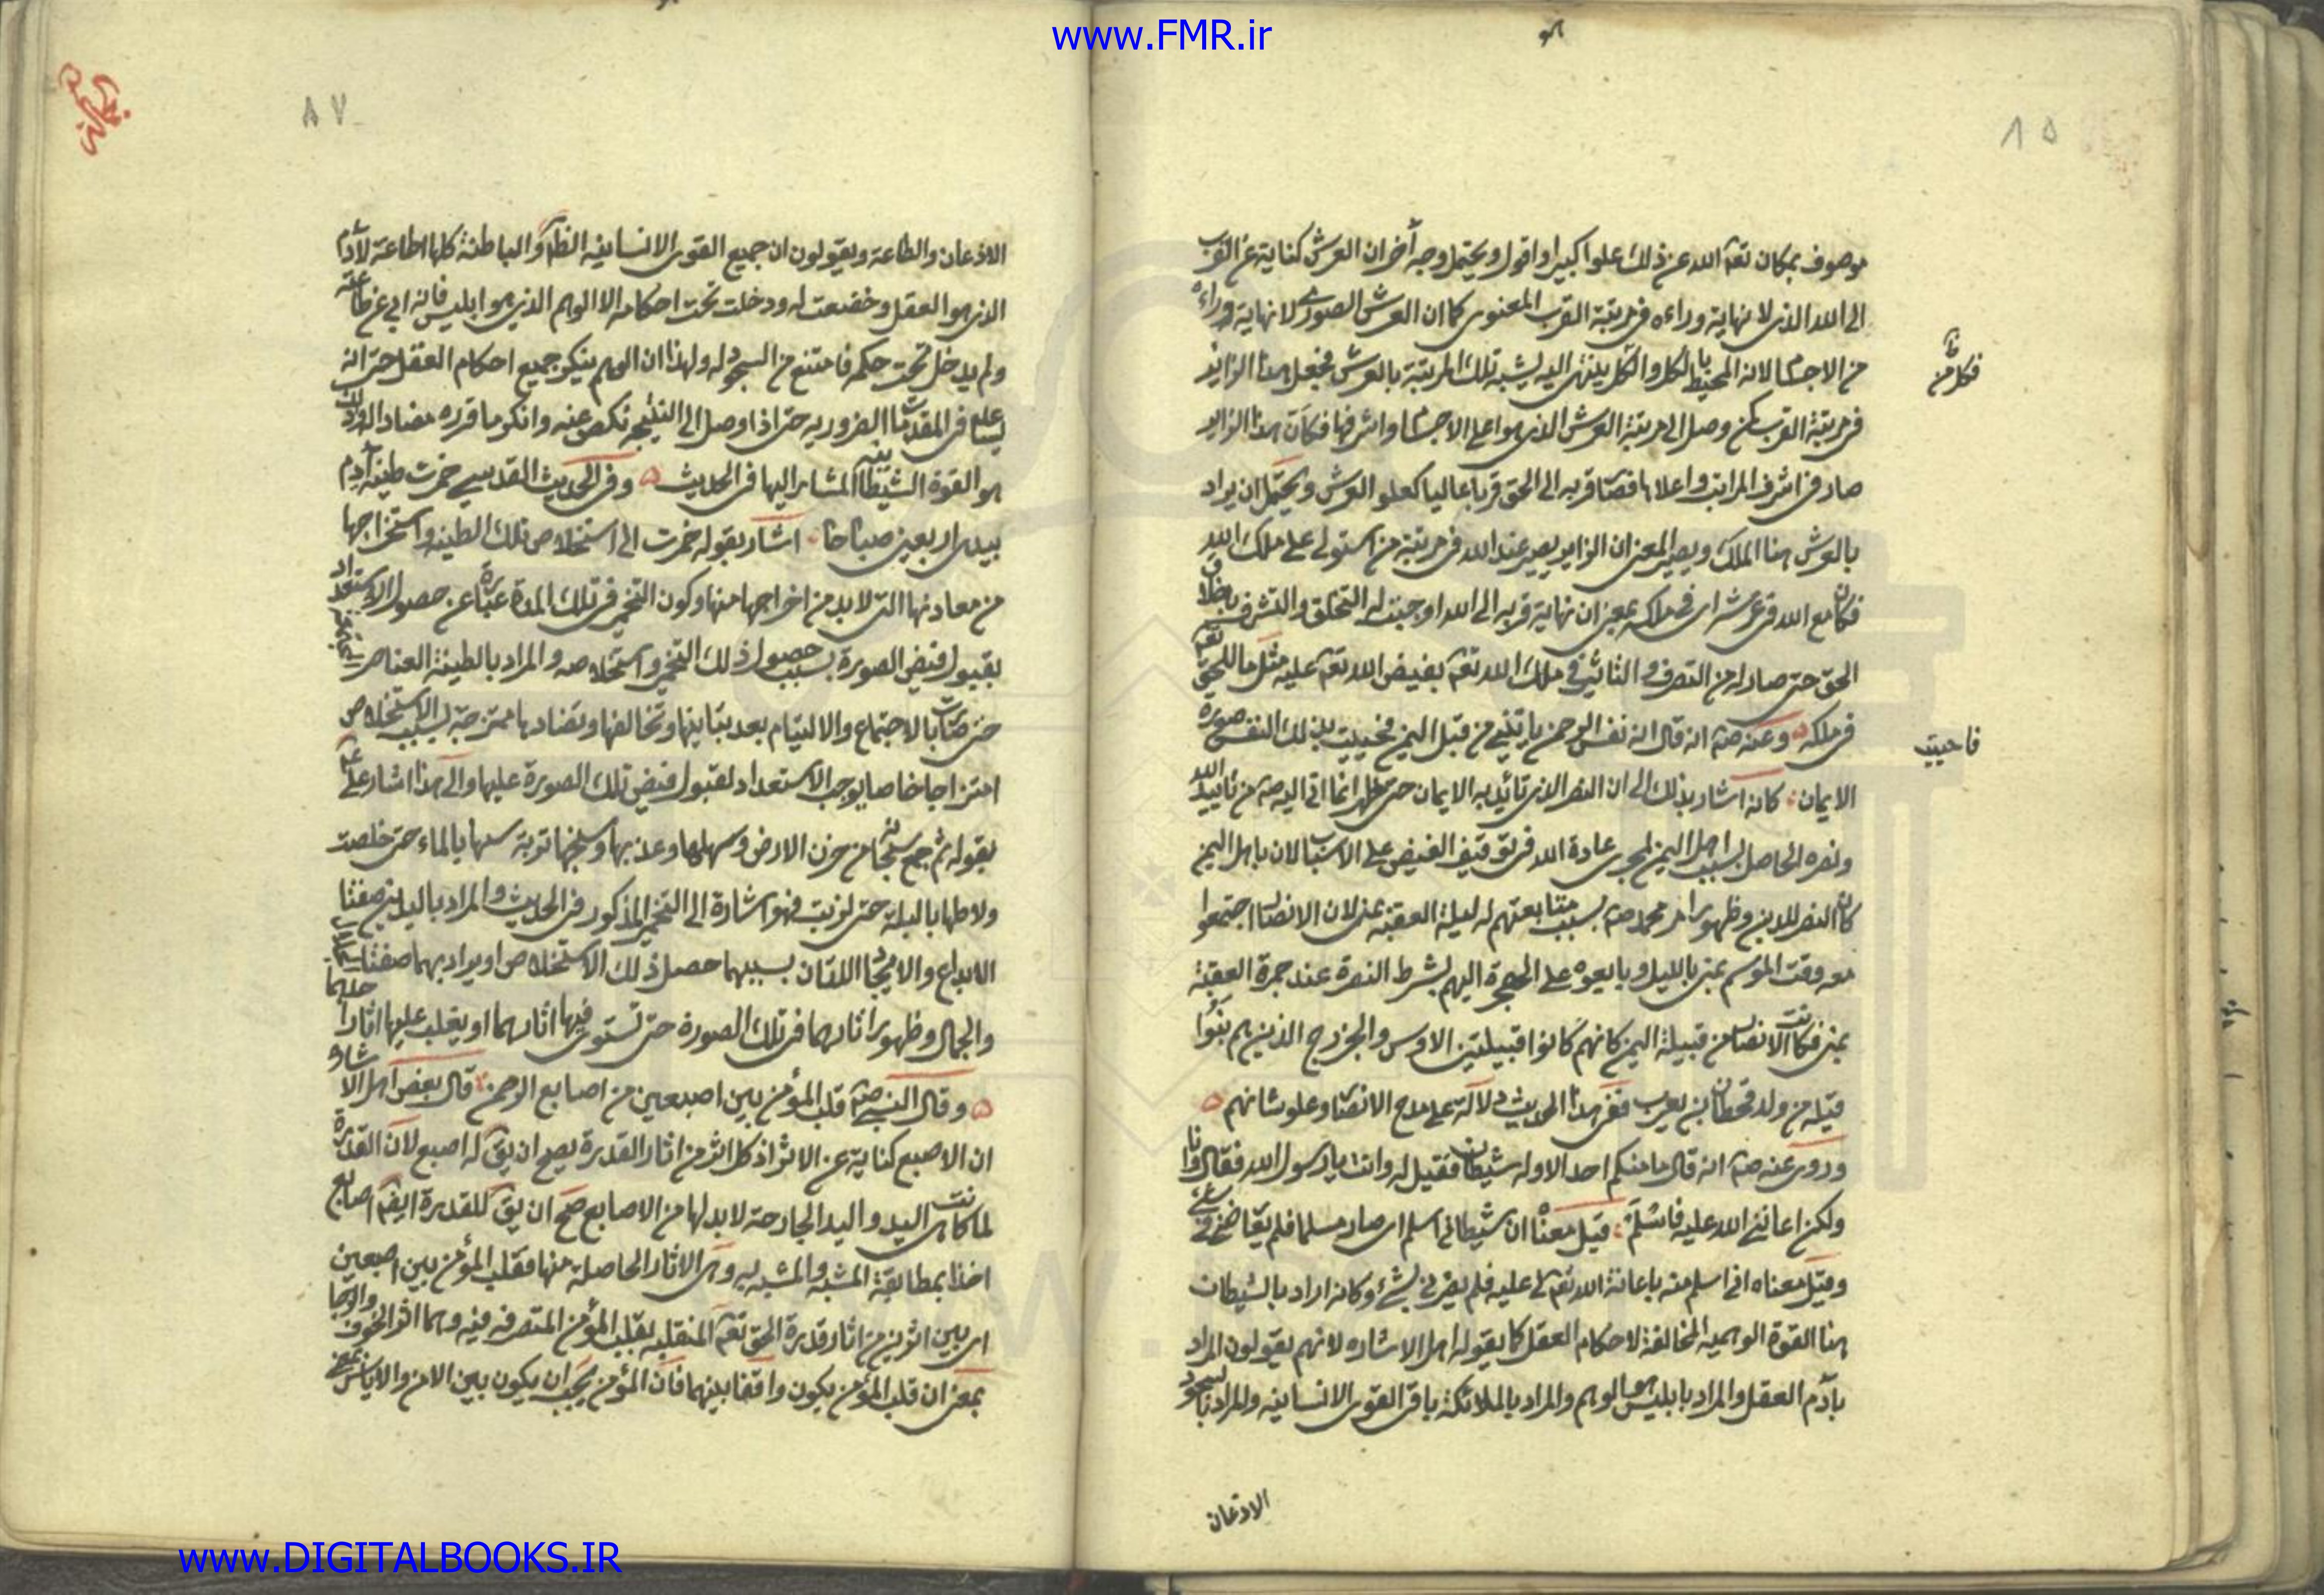 www.FMR.ir
٨٥
موصوف بمكان تعه الله عن ذلك علوا كبيرا واقول ويحتمل وجه آخر ان العرش كناية عن القرب
الى الله الذى لا نهاية وراءه فى مرتبة القرب المعنوى كما ان العرش الصورى لا نهاية وراءه
من الاجسام لانه المحيط بالكل والكل ينتهى اليه يشبه تلك المرتبة بالعرش فجعل هذا الزاير
فى مرتبة القرب كمن وصل الى مرتبة العرش الذى هو اعلى الاجسام واشرفها فكان هذا الزاير
صار فى اشرف المراتب واعلاها فصار قربه الى الحق قربا عاليا كعلو العرش ويحتمل ان يراد
بالعرش هنا الملك ويصير المعنى ان الزاير يصير عند الله فى مرتبة من استولى على ملك الله
فكان مع الله فى عرشه اى فى ملكه بمعنى ان نهاية قربه الى الله اوجبت له التخلق والتشرف باخلاق
الحق حتى صار له من التصرف والتاثير فى ملك الله تعه بفيض الله تعه عليه مثل ما للحق تعه
فى ملكه وعنه صه انه قال انه نفس الرحمن ياتينى من قبل اليمن فحييت بذلك النفس صورة
الايمان كانه اشار بذلك الى ان النصر الذى تائيد به الايمان حتى ظهر انما اتى اليه صه من تاييد الله
ونصره الحاصل بسبب اهل اليمن لجرى عادة الله فى توقيف الفيض على الاسباب لان باهل اليمن
كان النصر للدين وظهور امر محمد صه بسبب متابعتهم له ليلة العقبة بمنى لان الانصار اجتمعوا
معه وقت الموسم بمنى بالليل وبايعوه على الهجرة اليهم بشرط النصرة عند جمرة العقبة
بمنى فكانت الانصار من قبيلة اليمن كانهم كانوا قبيلتين الاوس والخزرج الذين هم بنوا
قيله من ولد قحطان بن يعرب ففى هذا الحديث دلالة على مدح الانصار وعلو شانهم
وروى عنه صه انه قال ما منكم احد الا وله شيطان فقيل له وانت يا رسول الله فقال وانا
ولكن اعاننى الله عليه فاسلم قيل معناه ان شيطانى اسلم اى صار مسلما فلم
وقيل معناه انى اسلم منه باعانة الله تعه لى عليه فلم يضرنى بشئ وكانه اراد بالشيطان
هنا القوة الوهميه المخالفة لاحكام العقل كما يقوله اهل الاشاره لانهم يقولون المراد
بآدم العقل والمراد بابليس هو الوهم والمراد بالملائكة باقى القوى الانسانيه والمراد بالسجود
الاذعان
فاحييت
٨٧
الاذعان والطاعة ويقولون ان جميع القوى الانسانيه الظاهرة والباطنة كلها اطاعة لآدم
الذى هو العقل وخضعت له ودخلت تحت احكامه الا الوهم الذى هو ابليس فانه ابى عن طاعته
ولم يدخل تحت حكمه فامتنع من السجود له ولهذا ان الوهم ينكر جميع احكام العقل حتى انه
يساعده فى المقدمات الضروريه حتى اذا وصل الى النتيجه نكص عنه وانكر ما قرره مضادا له وذلك
هو القوة الشيطانية المشار اليها فى الحديث وفى الحديث القدسى خمرت طينة آدم
بيدى اربعين صباحا اشار بقوله خمرت الى استخلاص تلك الطينه واستخراجها
من معادنها التى لا بد من اخراجها منها وكون التخمير فى تلك المدة عبارة عن حصول الاستعداد
بقبول فيض الصورة بسبب حصول ذلك التخمير واستخلاصه والمراد بالطينة العناصر
حتى صارت بالاجتماع والالتيام بعد تباينها وتخالفها وتضادها ممتزجة بسبب الاستخلاص
امتزاجا خاصا يوجب الاستعداد لقبول فيض تلك الصورة عليها والى هذا اشار على عه
بقوله ثم جمع سبحانه من حزن الارض وسهلها وعذبها وسبخها تربة سنها بالماء حتى خلصت
ولاطها بالبلة حتى لزبت فهو اشارة الى التخمير المذكور فى الحديث والمراد باليدين صفتا
الابداع والايجاد اللتان بسببهما حصل ذلك الاستخلاص او يراد بهما صفتا الجلال
والجمال وظهور اثارهما فى تلك الصورة حتى تستوى فيها اثارهما او يغلب عليها اثار احدهما
وقال النبى صه قلب المؤمن بين اصبعين من اصابع الرحمن قال بعض اهل الاشارة
ان الاصبع كناية عن الاثر اذ كل اثر من اثار القدرة يصح ان يق له اصبع لان القدرة
لما كانت هى اليد واليد الجارحة لا بد لها من الاصابع صح ان يق للقدرة ايضا اصابع
اخذا بمطابقة المشبه والمشبه به وهى الاثار الحاصلة منها فقلب المؤمن بين اصبعين
اى بين اثرين من اثار قدرة الحق تعه المنقلبه بقلب المؤمن المتصرفه فيه وهما اثر الخوف والرجا
بمعنى ان قلب المؤمن يكون واقفا بينهما فان المؤمن يجب ان يكون بين الامن والاياس
www.DIGITALBOOKS.IR